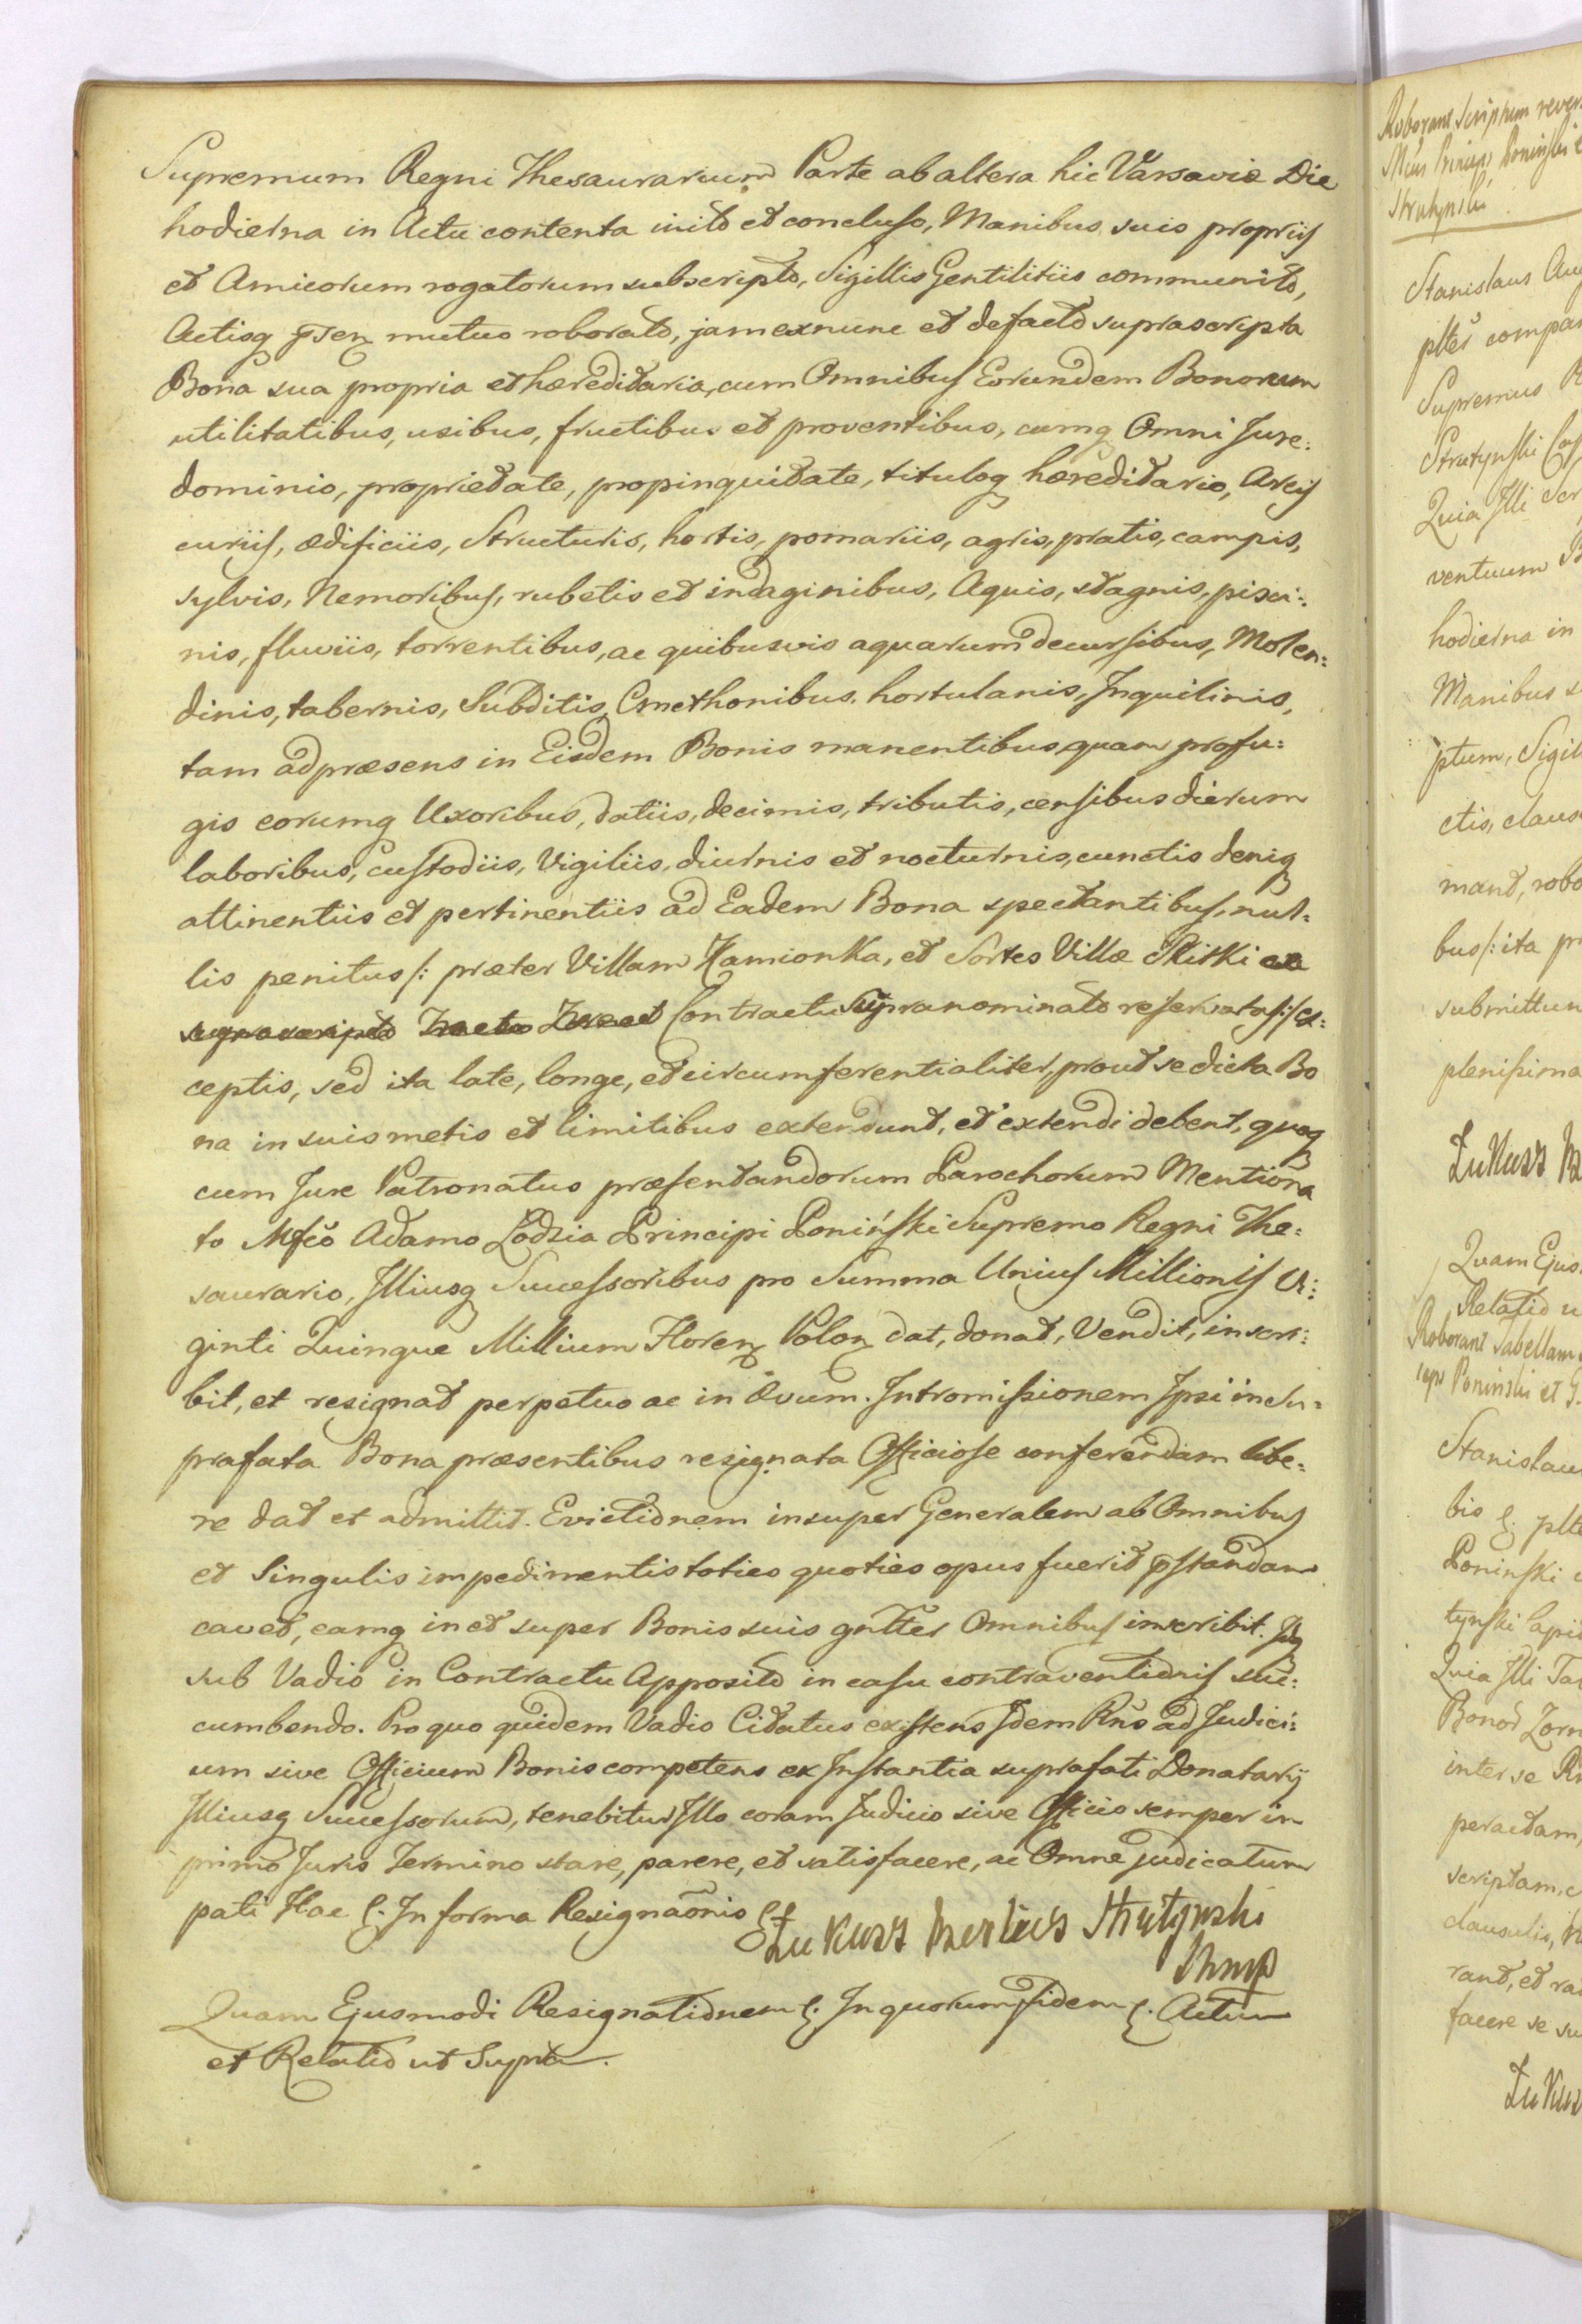 Supremum Regni Thesaurarium Parte ab altera hic Varsaviæ Die
hodierna in Actu contenta inito et concluso, Manibus suis propriis
et Amicorum rogatorum subscripto, Sigillis Gentilitiis communito,
Actisq pnsen mutuo roborato, jam exnunc et defacto suprascripta
Bona sua propria et hæreditaria, cum Omnibus Eorundem Bonorum
utilitatibus, usibus, fructibus et proventibus, cumq Omni Jure:
dominio, proprietate, propinquitate, tituloq hæreditario, Arcis
curiis, ædificiis, Structuris, hortis, pomariis, agris, pratis, campis,
sylvis, Nemoribus, rubetis et indaginibus, Aquis, stagnis, pisci:
nis, fluviis, torrentibus, ac quibusvis aquarum decursibus, Molen:
dinis, tabernis, Subditis, Cmethonibus, hortulanis, Inquilinis,
tam ad præsens in Eisdem Bonis manentibus quam profu:
gis eorumq Uxoribus, datiis, decimis, tributis, censibus dierum
laboribus, custodiis, Vigiliis, diurnis et nocturnis, cunctis deniq
attinentiis et pertinentiis ad Eadem Bona spectantibus, nul:
lis penitus /: præter Villam Kamionka, et Sortes Villæ Skitki ex
suprascripto Contractu Supranominato reservatas :/ ex:
ceptis, sed ita late, longe, et circumferentialiter, prout se dicta Bo
na in suis metis et limitibus extendunt, et extendi debent, quoq
cum Jure Patronatus præsentandorum Parochorum Mentiona
to Mfco Adamo Łodzia Principi Poniński Supremo Regni The:
saurario, Illiusq Successoribus pro Summa Unius Millionis Vi:
ginti Quinque Millium Floren Polon dat, donat, Vendit, inscri:
bit, et resignat perpetuo ac in Ævum. Intromissionem Ipsi in Su:
prafata Bona præsentibus resignata Officiose conferendam libe:
re dat et admittit. Evictionem insuper Generalem ab Omnibus
et Singulis impedimentis toties quoties opus fuerit pstandam
cavet, eamq in et super Bonis suis gnltter Omnibus inscribit. Idq
sub Vadio in Contractu Apposito in casu contraventionis suc:
cumbendo. Pro quo quidem Vadio Citatus existens Idem Rns ad Judici:
um sive Officium Bonis competens ex Instantia suprafati Donatarij
Illiusq Successorum, tenebitur Illo coram Judicio sive Officio semper in
primo Juris Termino stare, parere, et satisfacere, ac Omne judicatum
pati Hac &. In forma Resignaonis &
Łukasz Strutyński
Quam Ejusmodi Resignationem &. In quorum fidem &. Actum
et Relatio ut Supra.
Roborant Scriptum rever
Strutynski
Stanislaus Aug
pltes compar
Supremus R
Strutynski Cas
Quia Illi Scr
ventuum B
hodierna in
Manibus s
ptum, Sigil
ctis, claus
mant, robo
bus /: ita pr
submittun
plenissima
Łukasz
Quam Ejus
Relatio u
Roborant Tabellam
ceps Poninski et G.
Stanislaus
bis &. plte
Poninski
tynski Capit
Quia Illi Tab
Bonor
inter se Rn
peractam,
scriptam, c
clausulis,
rant, et rat
facere se su
Łukasz